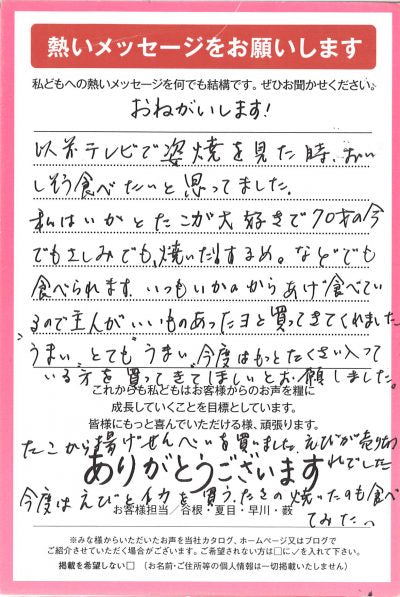 熱いメッセージをお願いします
私どもへの熱いメッセージを何でも結構です。ぜひお聞かせください。
おねがいします!
以前テレビで姿焼を見た時、おい
しそう食べたいと思ってました。
私はいかとたこが大好きで70才の今
でもさしみでも、焼いたするめ。などでも
食べられます。いつもいかのからあげ食べてい
るので主人がいいものあったヨと買ってきてくれました
"うまい"とても"うまい"今度はもっとたくさん入って
いる方を買ってきてほしいとお願しました。
これからも私どもはお客様からのお声を糧に
成長していくことを目標としています。
皆様にもっと喜んでいただける様、頑張ります。
たこから揚げせんべいも買いました。えびが売り切
れでした
ありがとうございます
今度はえびとイカを買う、たこの焼いたのも食べ
てみたい
お客様担当/谷根・夏目・早川・薮
※みな様からいただいたお声を当社カタログ、ホームページ又はブログで
ご紹介させていただく場合がございます。ご希望されない方は□に✓を入れて下さい。
掲載を希望しない□ (お名前・ご住所等の個人情報は一切掲載いたしません)